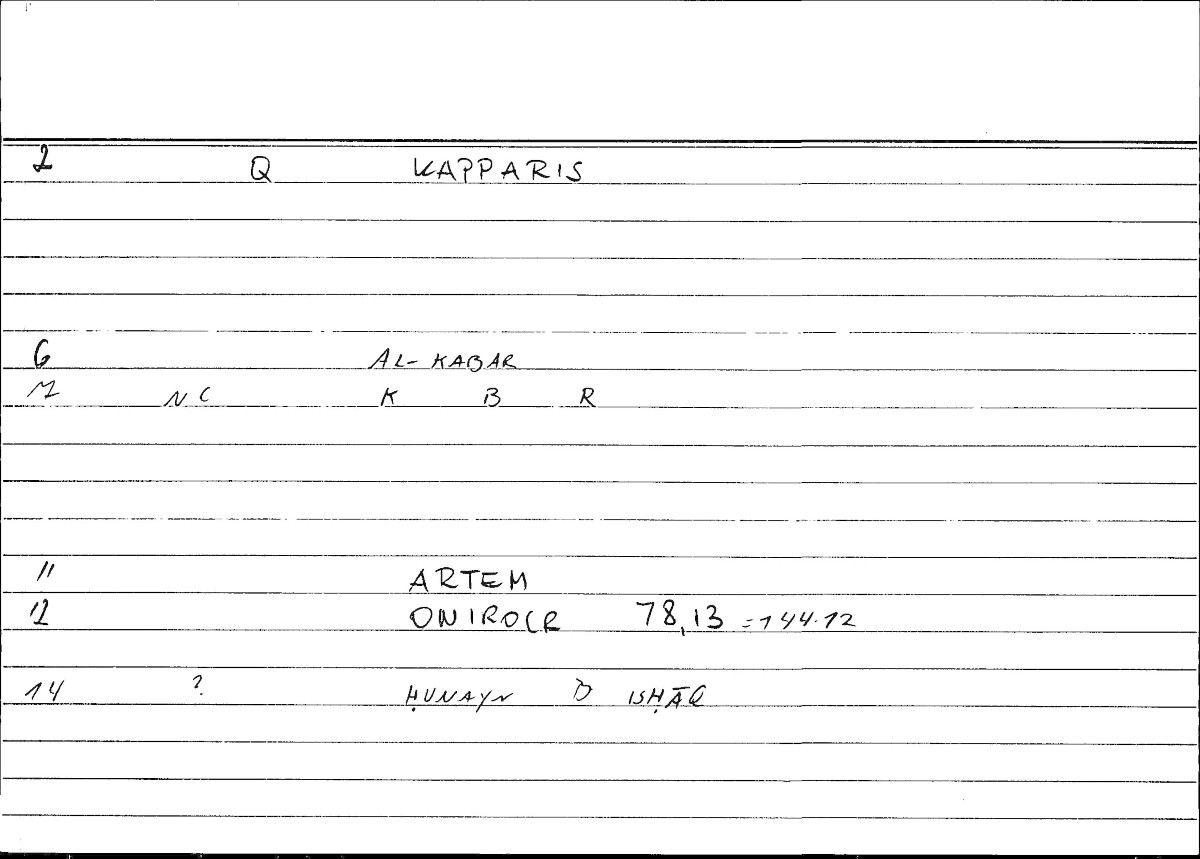 2 Q KAPPARIS
6 AL-KABAR
7 NC K B R
11 ARTEM
12 ONIROCR 78,13 =144.12
14 ? ḤUNAYN B ISḤĀQ